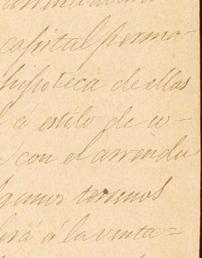 capital permo-
hipoteca de ellas
á estilo de co-
con el arrenda
gunos terrenos
á la venta=